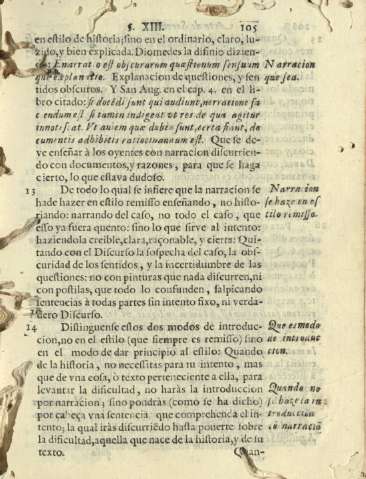 §. XIII. 105
en estilo de historia; sino en el ordinario, claro, lu-
zido, y bien explicada. Diomedes la difinio dizien-
do: Enarrat o est obscurarum quæstionum sensuum
que explanatio. Explanacion de questiones, y sen-
tidos obscuros. Y San Aug. en el cap. 4. en el li-
bro citado: si docēdi sunt qui audiunt, narratione fa
c endum est si tamen indigeat ut res de qua agitur
innotescat. Vt autem quæ dubia sunt, certa fiant, do
cumentis adhibitis ratiocinandum est. Que se de-
ve enseñar à los oyentes con narracion discurrien-
do con documentos, y razones, para que se haga
cierto, lo que estava dudoso.
Narracion
que sea.
13 De todo lo qual se infiere que la narracion se
ha de hazer en estilo remisso enseñando, no histo-
riando: narrando del caso, no todo el caso, que
esso ya fuera quento: sino lo que sirve al intento:
haziendola creible, clara, raçonable, y cierta: Qui-
tando con el Discurso la sospecha del caso, la obs-
curidad de los sentidos, y la incertidumbre de las
questiones: no con pinturas que nada discurren, ni
con postilas, que todo lo confunden, salpicando
sentencias à todas partes sin intento fixo, ni verda-
dero Discurso.
Narracion
se haze en es
tilo remisso.
14 Distinguense estos dos modos de introduc-
cion, no en el estilo (que siempre es remisso) sino
en el modo de dar principio al estilo: Quando
de la historia, no necessitas para tu intento, mas
que de vna cosa, ò texto perteneciente a ella, para
levantar la dificultad, no haràs la introduccion
por narracion; sino pondràs (como se ha dicho)
por cabeça vna sentencia que comprehenda el in-
tento; la qual iràs discurriēdo hasta ponerte sobre
la dificultad, aquella que nace de la historia, y de su
texto. Quan-
Que es modo
de introduc
cion.
Quando no
se haze la in
troduccion
cō narraciō